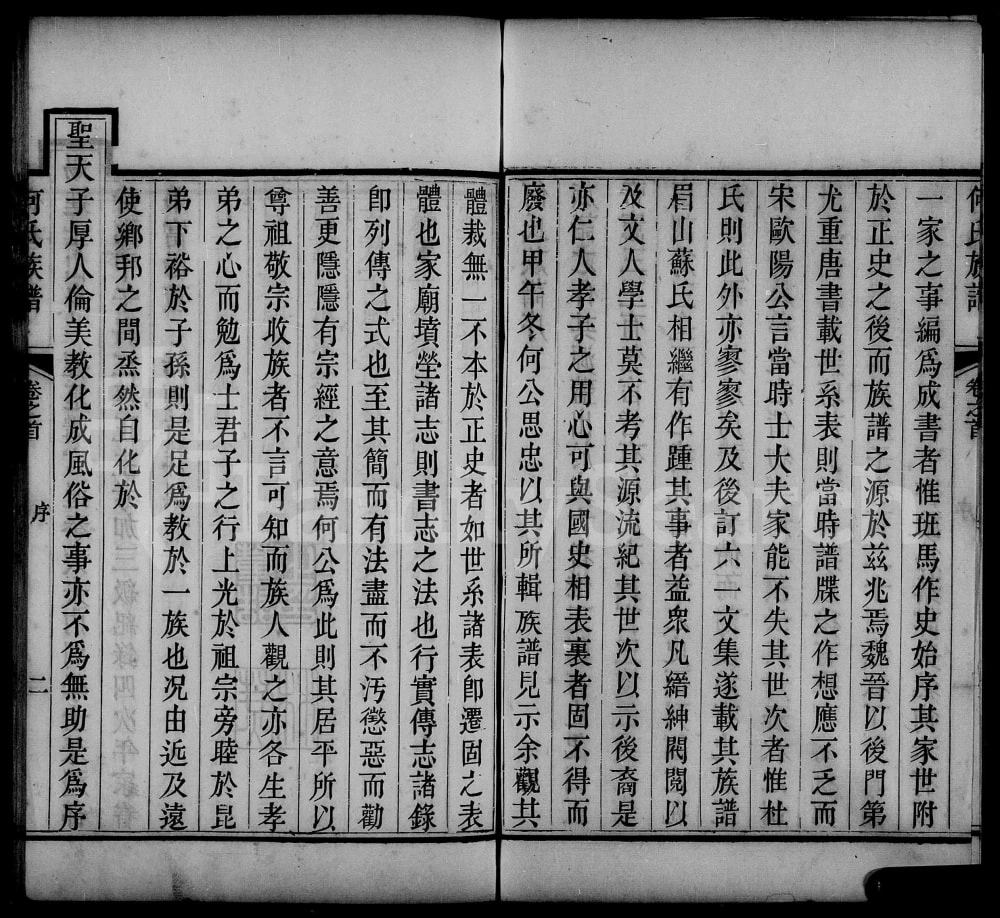 何氏族譜
卷之首
一家之事編爲成書者惟班馬作史始序其家世附
於正史之後而族譜之源於兹兆焉魏晉以後門第
尤重唐書載世系表則當時譜牒之作想應不乏而
宋歐陽公言當時士大夫家能不失其世次者惟杜
氏則此外亦寥寥矣及後訂六一文集遂載其族譜
眉山蘇氏相繼有作踵其事者益衆凡縉紳閥閱以
及文人學士莫不考其源流紀其世次以示後裔是
亦仁人孝子之用心可與國史相表裏者固不得而
廢也甲午冬何公思忠以其所輯族譜見示余觀其
體裁無一不本於正史者如世系諸表卽遷固之表
體也家廟墳塋諸志則書志之法也行實傳志諸錄
卽列傳之式也至其簡而有法盡而不汚懲惡而勸
善更隱隱有宗經之意焉何公爲此則其居平所以
尊祖敬宗收族者不言可知而族人觀之亦各生孝
弟之心而勉爲士君子之行上光於祖宗旁睦於昆
弟下裕於子孫則是足爲教於一族也况由近及遠
使鄉邦之間烝然自化於
聖天子厚人倫美教化成風俗之事亦不爲無助是爲序
何氏族譜
卷之首
序
二